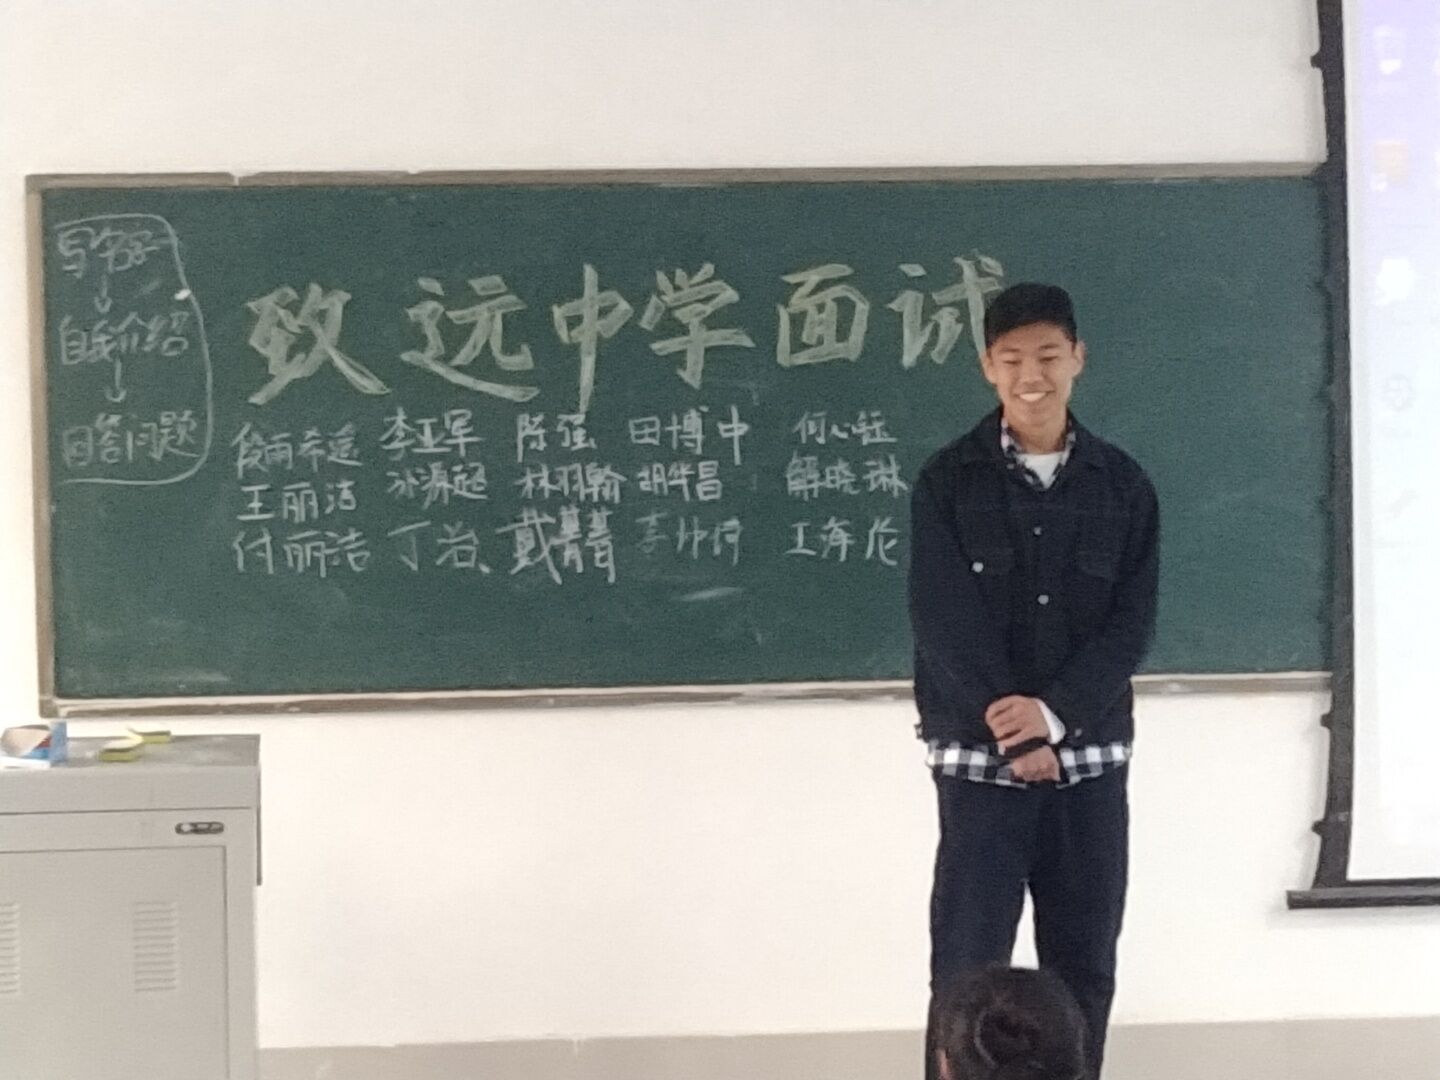 写名字
自我介绍
回答问题
致远中学面试
段雨希 李亚军 陈强 田博中 何心
王丽洁 源超 林羽翰 胡华昌 解晓琳
付丽洁 丁治 戴菁菁 李帅 王海伦